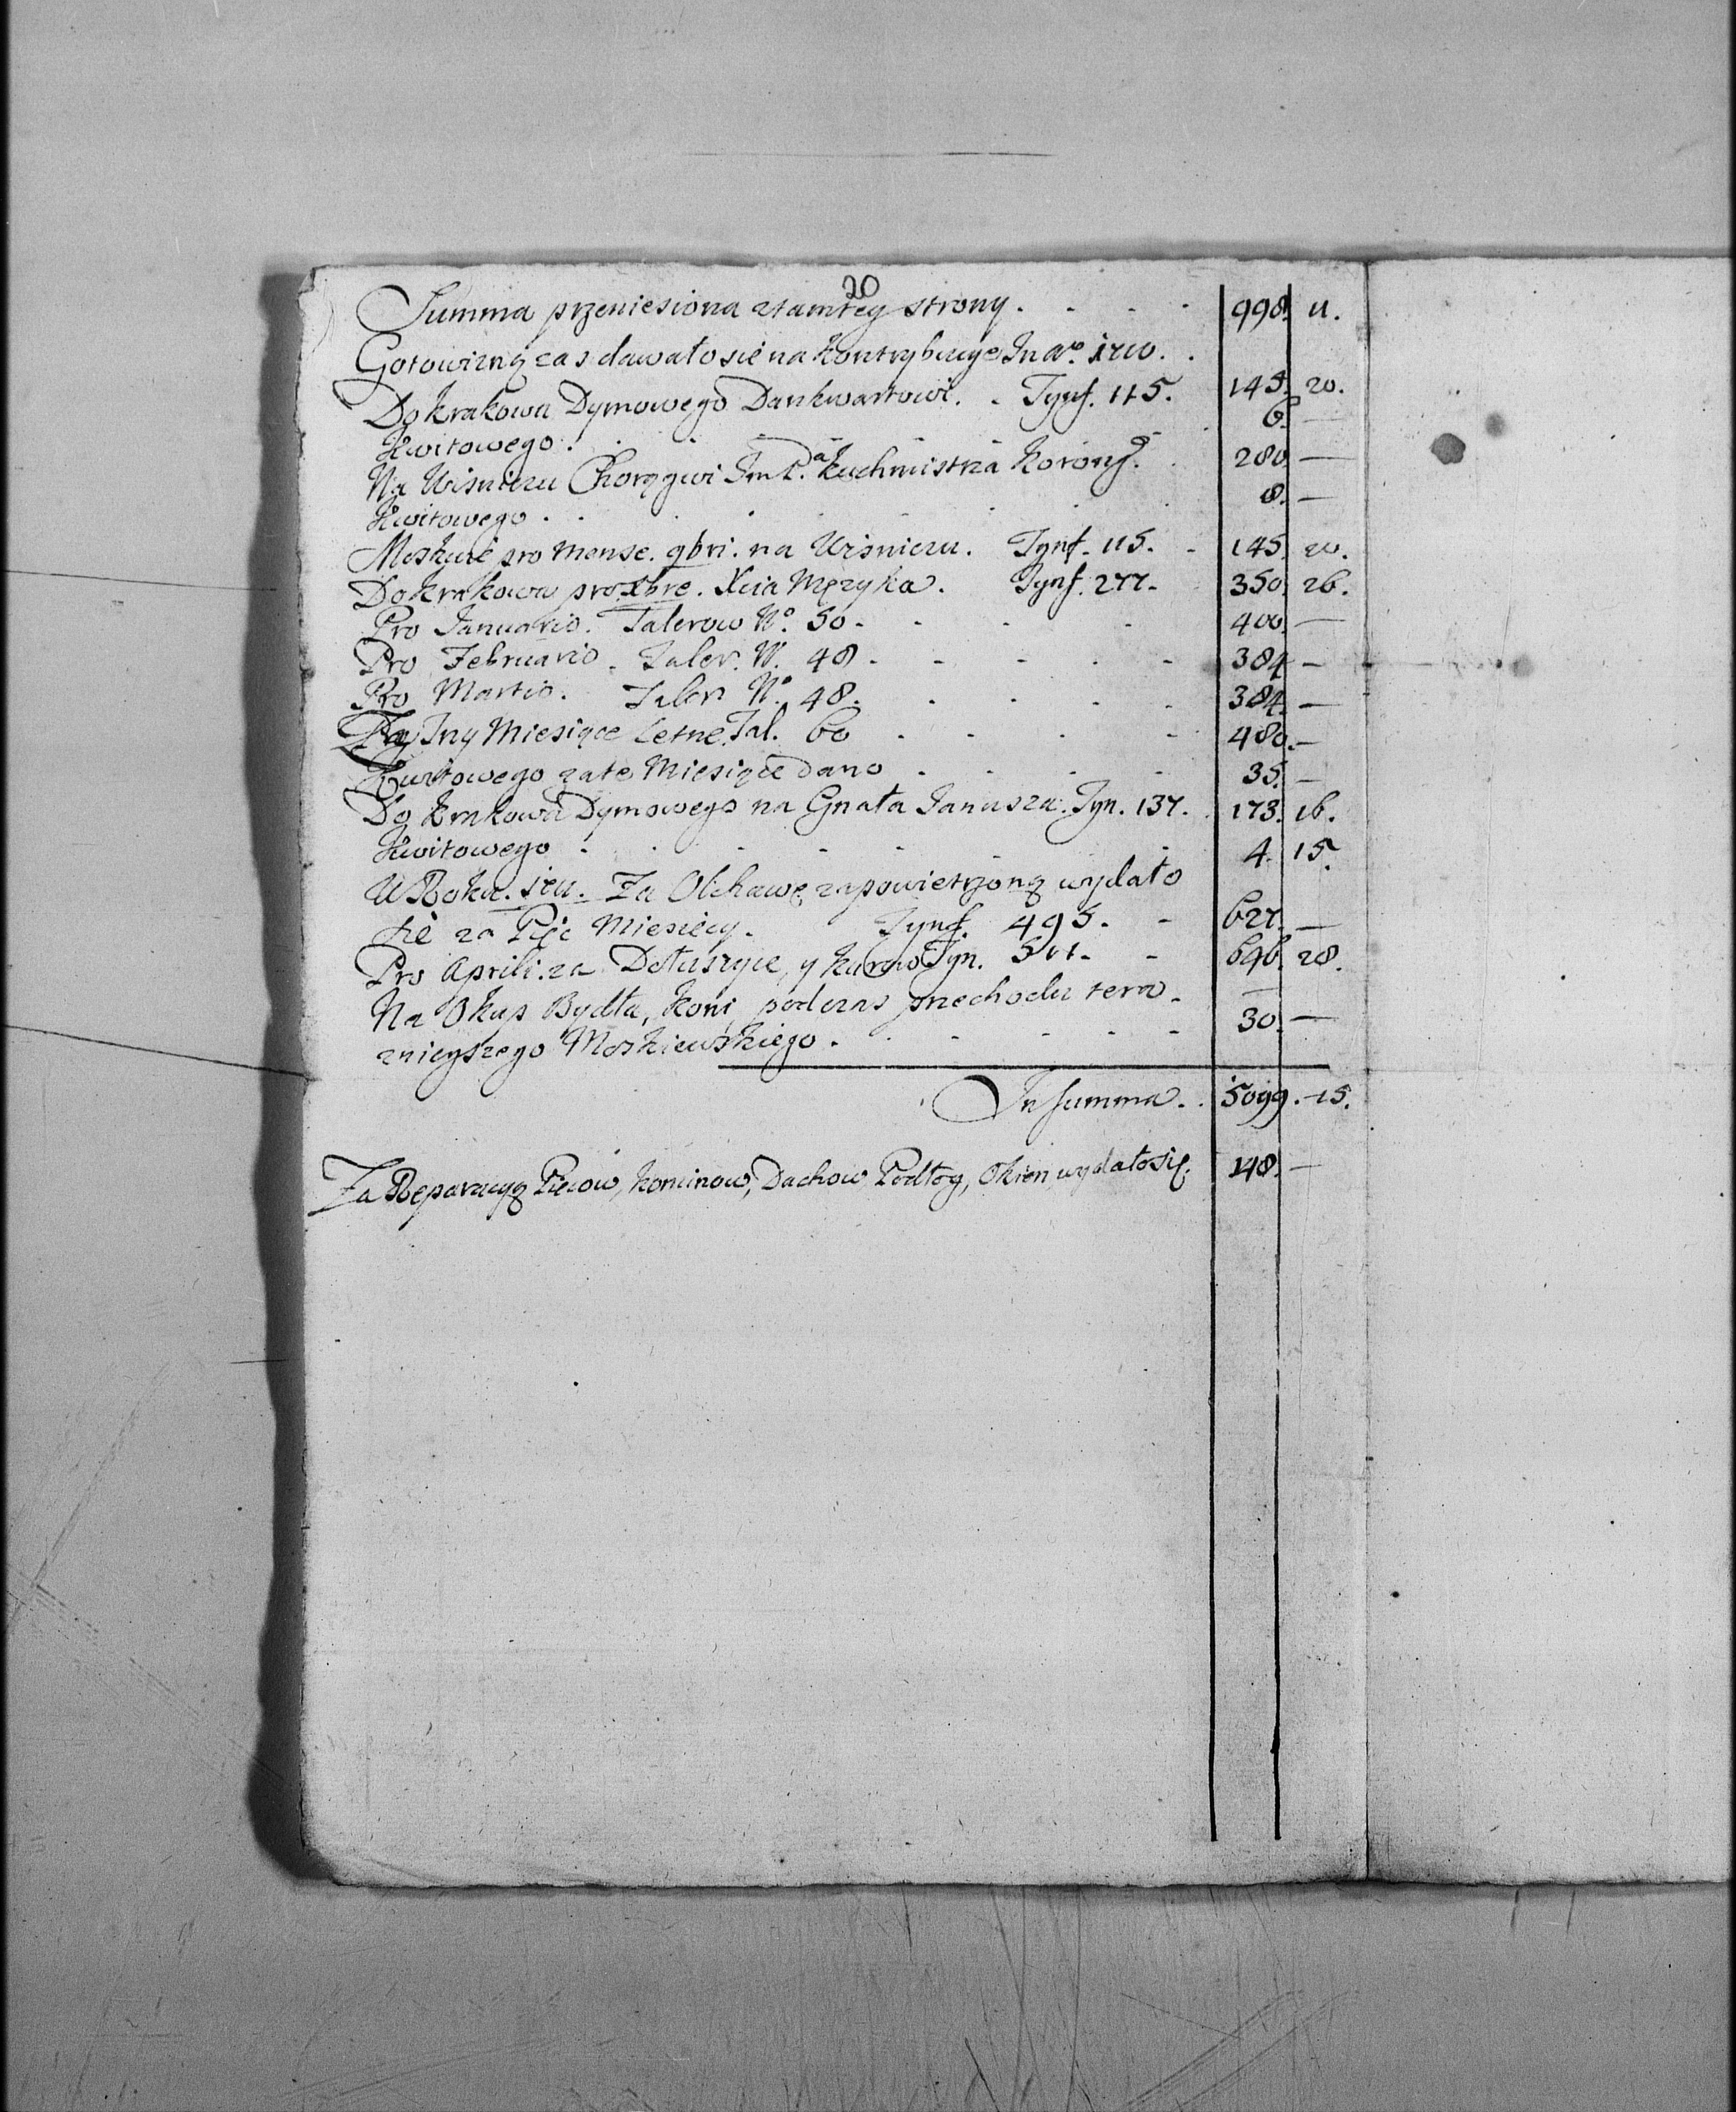 20
Summa przeniesiona ztamtey strony. 998. 11.
Gotowizną zas dawało sie na kontrybucye In Ao. 1710.
Do Krakowa Dymowego Dankwartowi. Tynf. 115. 145. 20.
Kwitowego. 6. —
Na Wisniczu Chorągwi Kuchmistrza Koron. 280. —
Kwitowego. 8. —
Moskwie pro Mense. 9bri. na Wisniczu. Tynf. 115. 145. 20.
Do Krakowa pro Xbre. Xcia Męzyka. Tynf. 277. 350. 26.
Pro Januario. Talerow No. 50. 400. —
Pro Februario. Taler. N. 48. 384. —
Pro Martio. Taler No. 48. 384. —
Za Iny Miesiące Letne. Tal. 60 480. —
Kwitowego za te Miesiące dano 35. —
Do Krakowa Dymowego na Gnata Janusza. Tyn. 137. 173. 16.
Kwitowego 4. 15.
W Roku. 1711. Za Olchawę zapowietrzoną wydało
sie za Pięc Miesiecy. Tynf. 495. 627. —
Pro Aprili. za Dołuszyce, y Kurow Tyn. 696. 28.
Na Okup Bydła, Koni, podczas przechodu tera-
znieyszego Moskiewskiego. 30. —
In Summa. 5099. 15.
Za Reparacyą Piecow, Kominow, Dachow, Podłog, Okien wydało się. 148. —